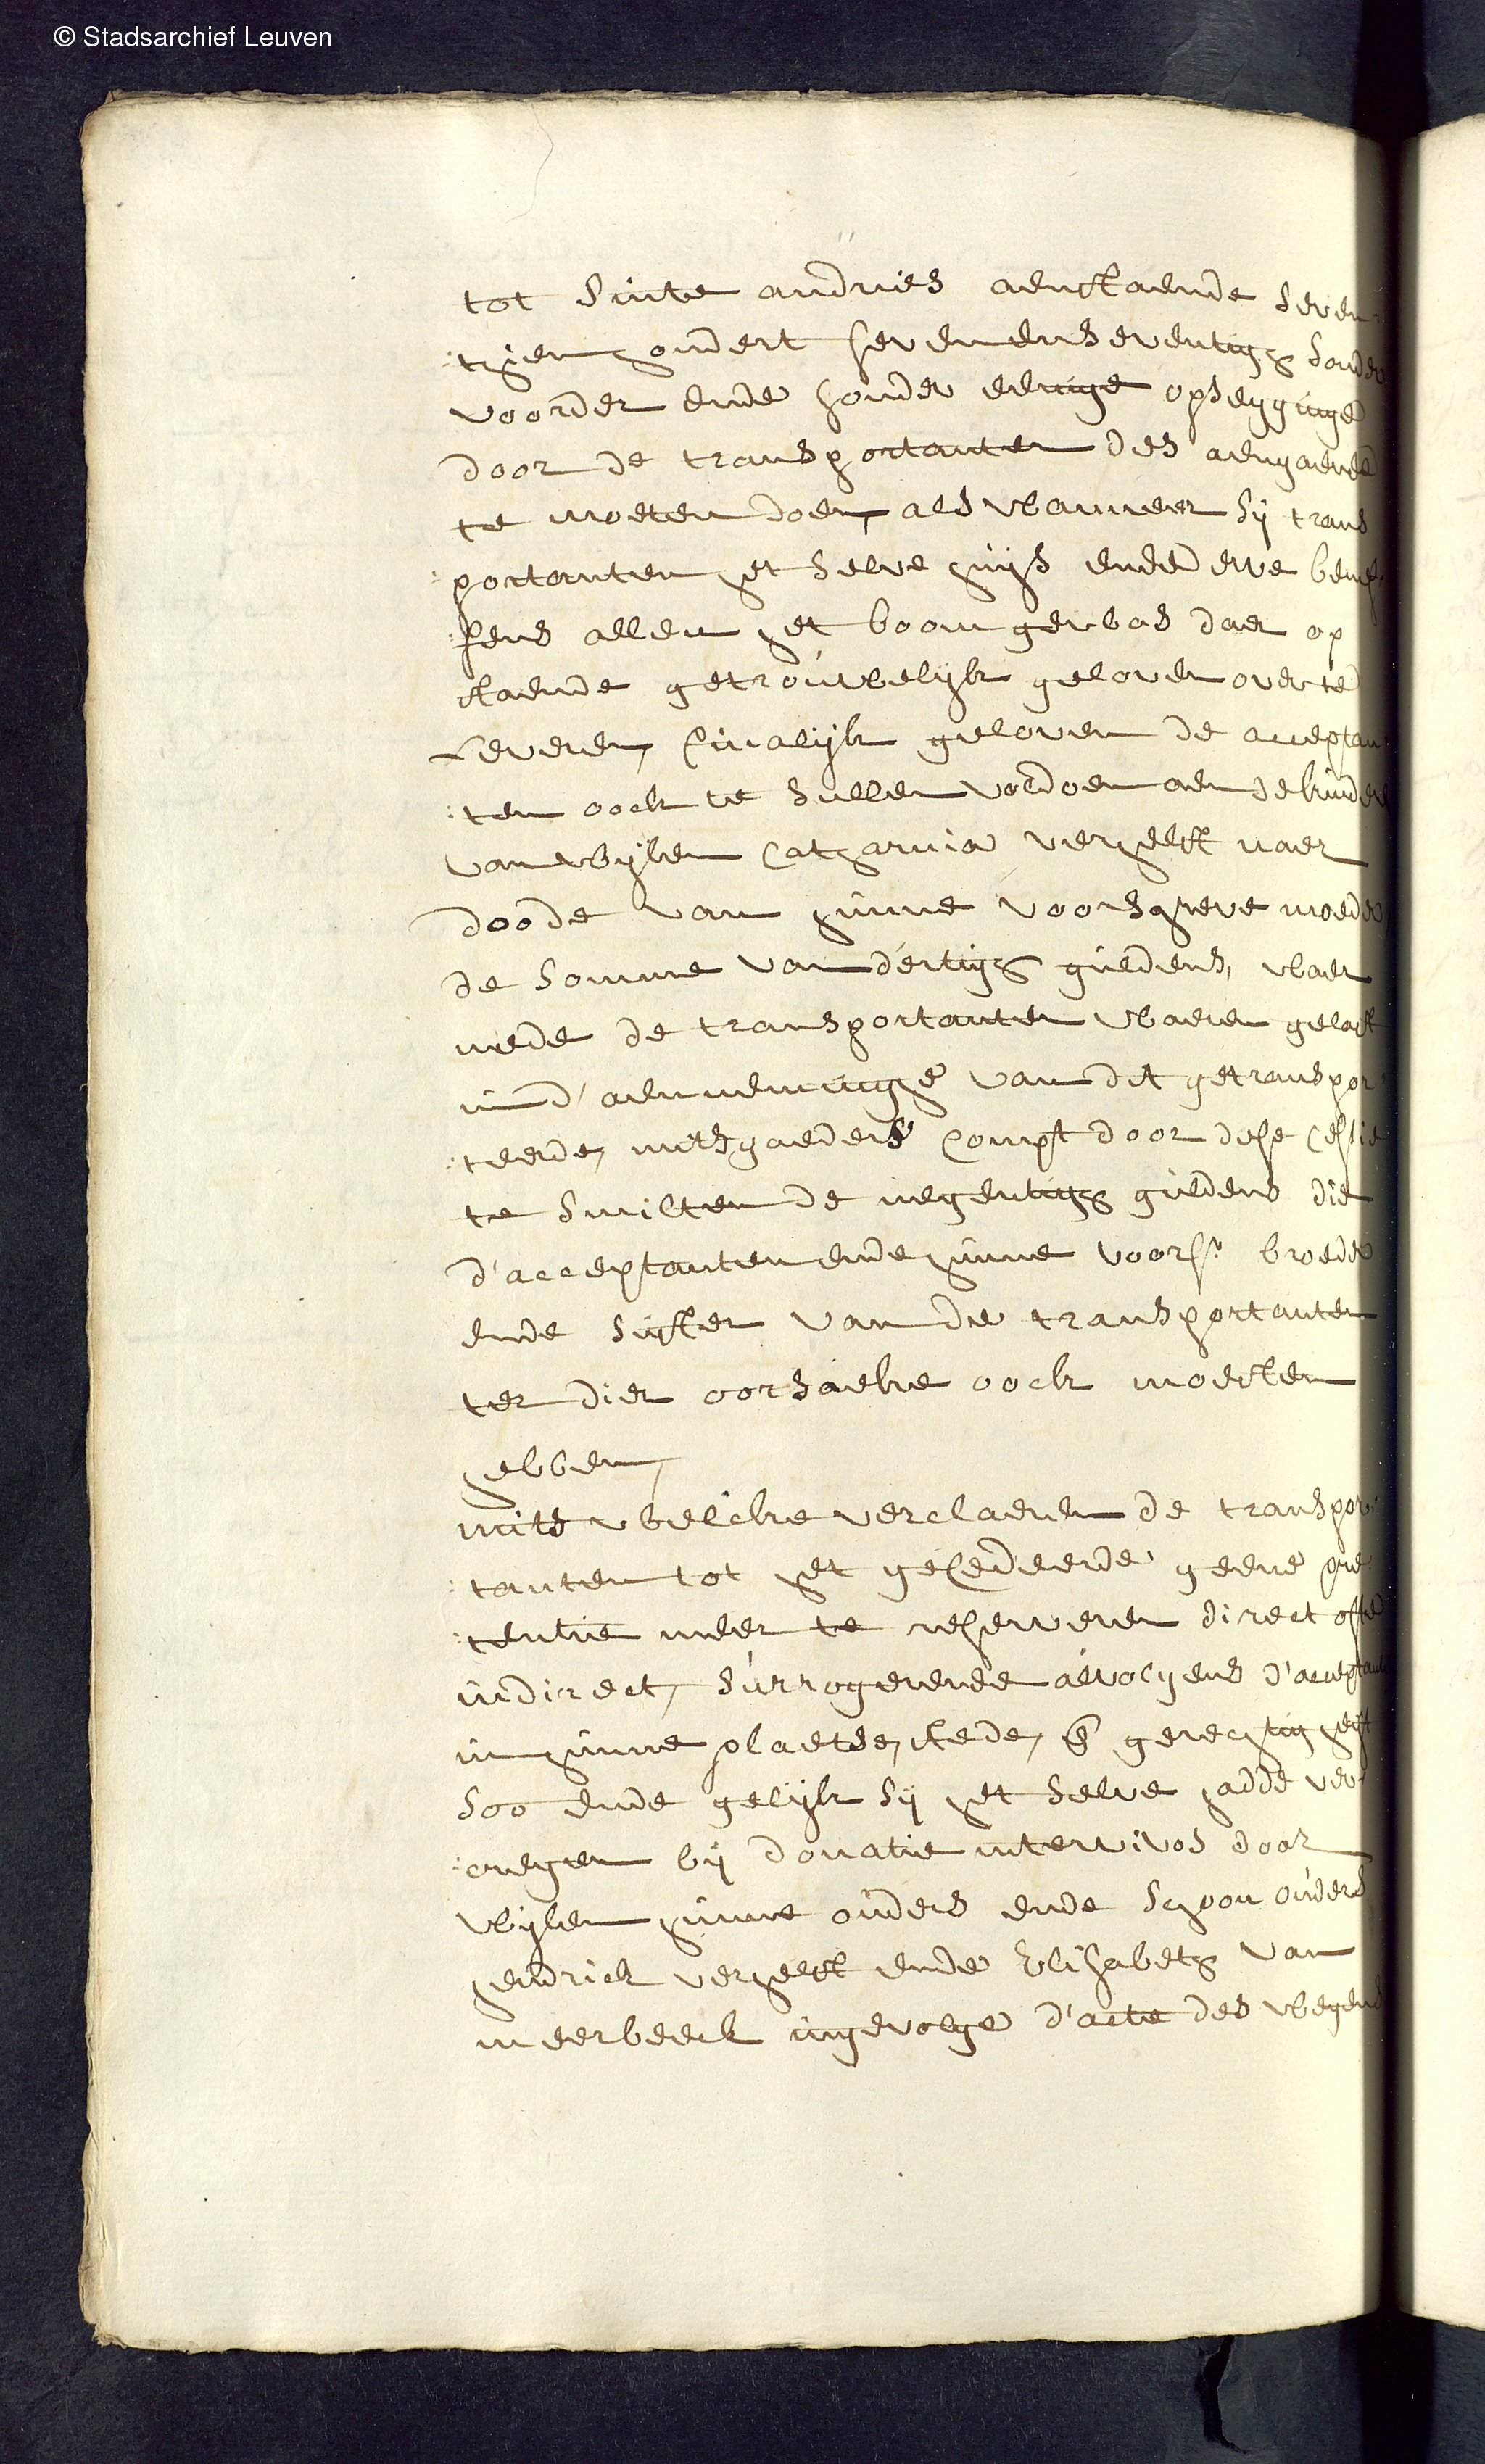 © Stadsarchief Leuven
tot sinte andries aenstaende seven
:thien hondert sevenentseventigh sonder
voorder ende sonder eenige opsegginge
door de transportanten des aengaende
te moeten doen, als wanneer sij trans
:portanten het selve huijs ende erve benef
:fens allen het boomgewas daer op
staende getrouwelijk geloven over te
Leveren, finalijk geloven de acceptan
:ten oock te sullen voldoen aen de kinderen
van wijlen Catharina verhelst naer
doode van hunne voorschreve moeder
de somme van dertigh guldens, waer
mede de transportanten waeren gelast
in d'aenneminge van dit getranspor
:teerde, mitsgaeders compt door dese cessie
te smilten de negentigh guldens die
d'acceptanten ende hunne voors: broeder
ende suster van de transportanten
ter dier oorsaeke oock moesten
hebben,
mits welcke verclaeren de transpor
:tanten tot het gecedeerde geene pre
:tentie meer te reserveren direct ofte
indirect, surrogerende alvolgens d'acceptanten
in hunne plaetse, stede, en gerechtigheijt
soo ende gelijk sij het selve hadde ver
:cregen bij donatie inter vivos door
wijlen hunne ouders ende schoon ouders
hendrick verhelst ende Elisabeth van
meerbeeck ingevolge d'acte des wegens